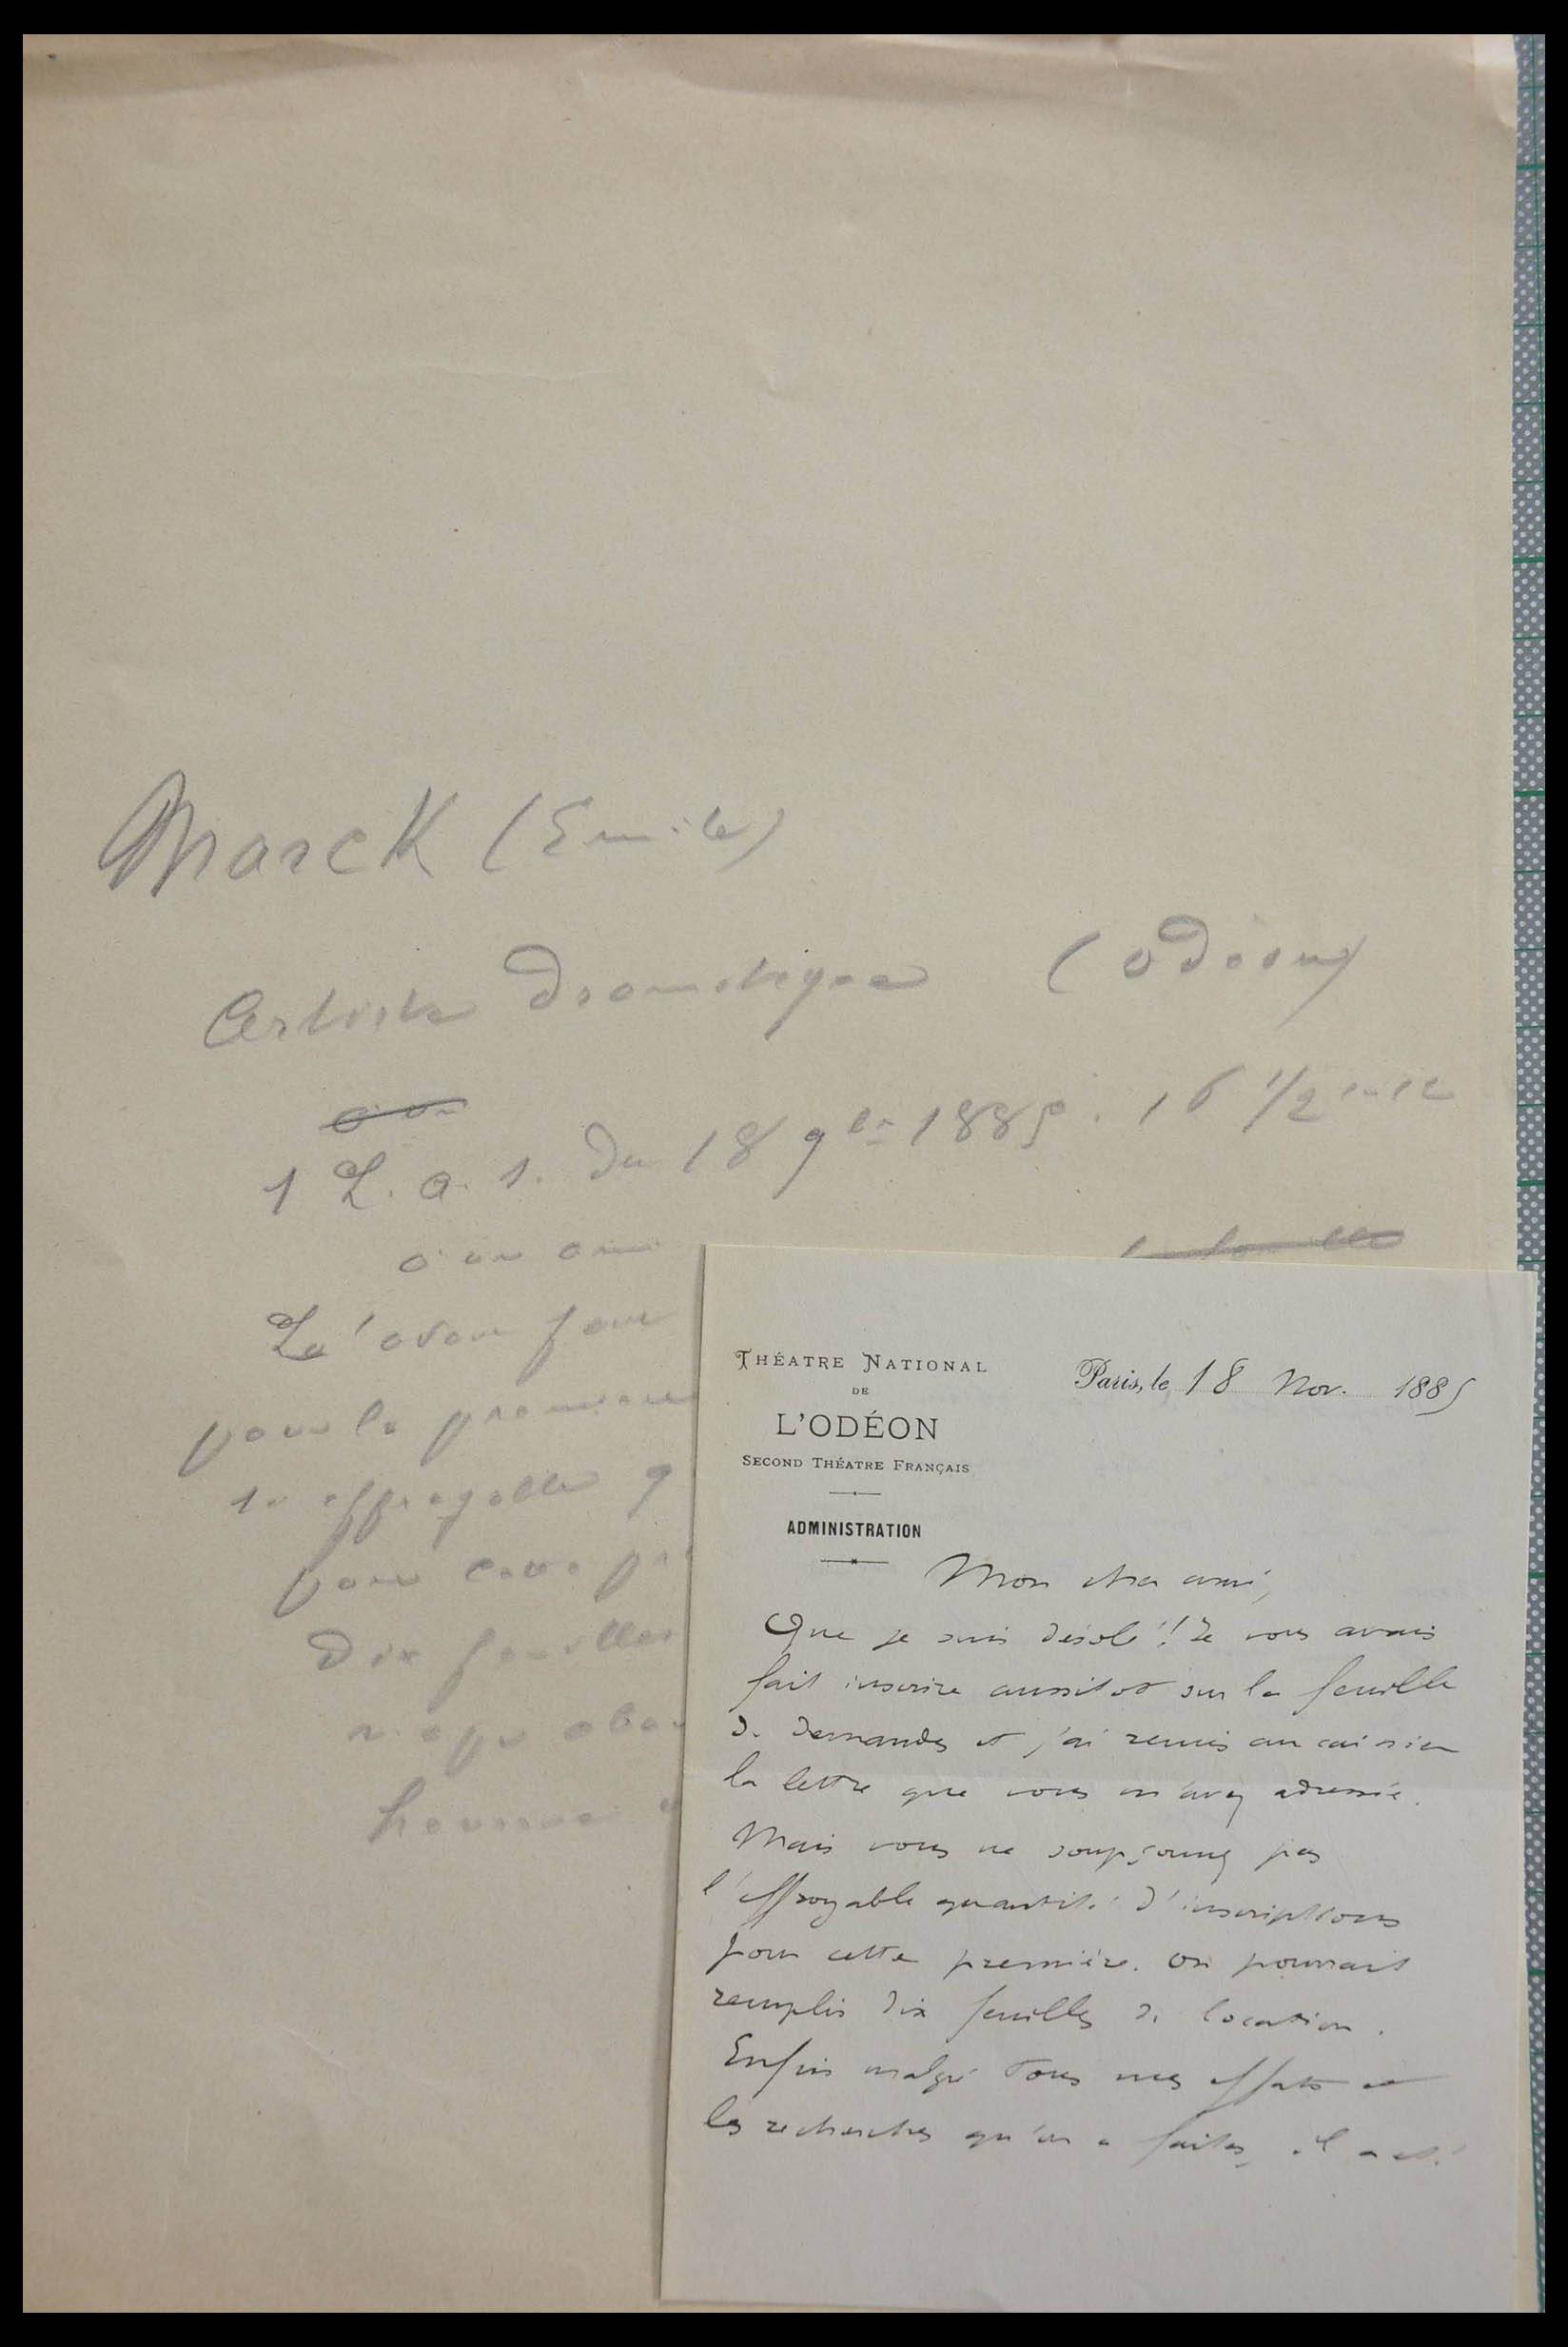 Marck (Emile)
Artiste dramatique (odéon)
1 L. a. s. du 18 9bre 1885. 1 p 1/2 in-12
à un ami
L'avan fair
pour la première
se effroyable q
pour cette pr
Dix feuilles
n'a pu abou
heureux
THÉATRE NATIONAL
DE
L'ODÉON
SECOND THÉATRE FRANÇAIS
ADMINISTRATION
Paris, le 18 Nov. 1885
Mon cher ami,
Que je suis désolé! Je vous avais
fait inscrire aussitot sur la feuille
de demandes et j'ai remis au caissier
la lettre que vous m'avez adressée.
Mais vous ne soupçonnez pas
l'effroyable quantité d'inscriptions
pour cette première. On pourrait
remplir dix feuilles de location.
Enfin malgré tous mes efforts et
les recherches qu'on a faites, il a été